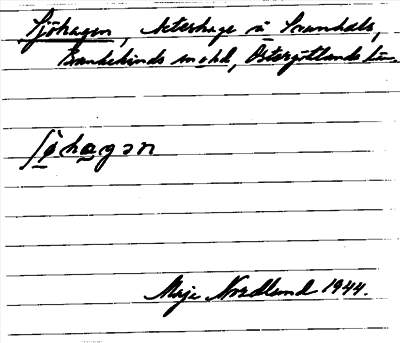 Sjöhagen, beteshage å Svinhals,
Bankekinds sn o hd, Östergötlands län.
ʃö̀hagən
Maja Nordlund 1944.